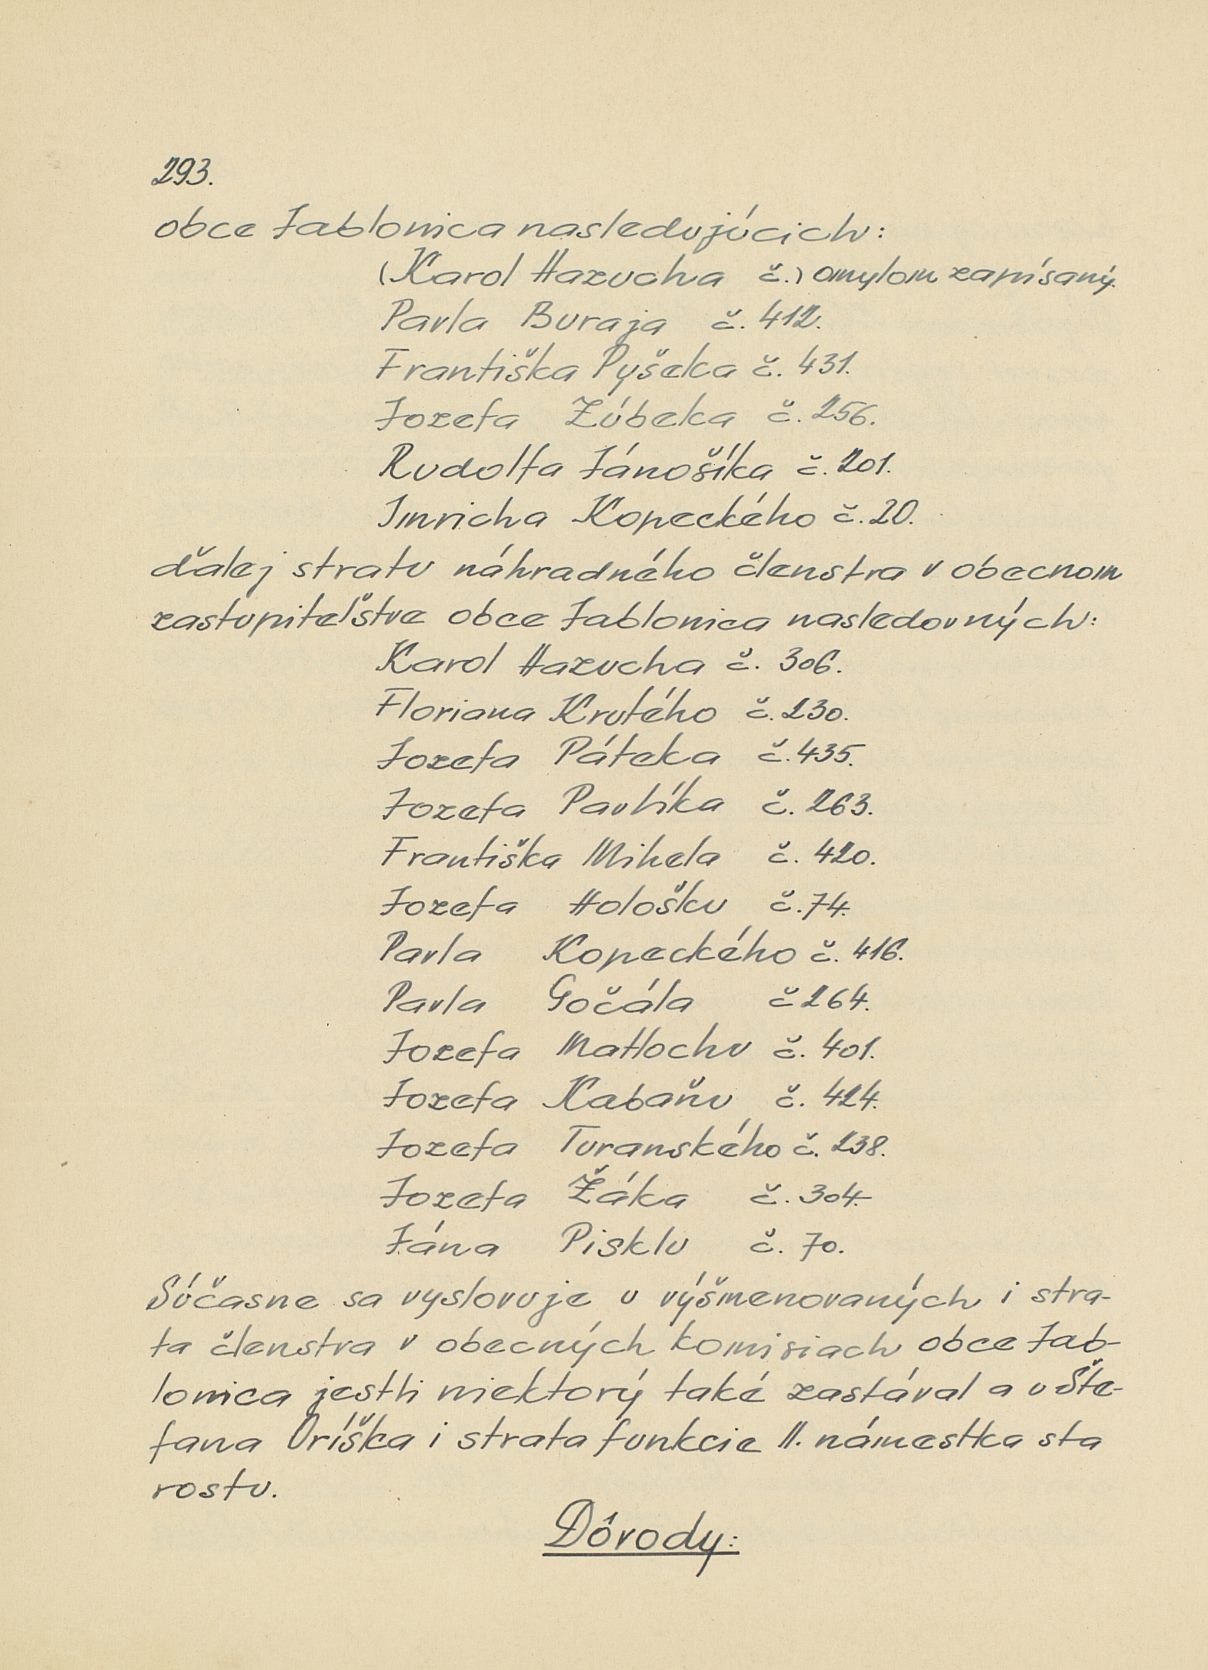 293.
obce Jablonica nasledujúcich:
(Karol Hazucha č.) omylom zapísaný.
Pavla Buraja č. 412.
Františka Pyšeka č. 431.
Jozefa Zúbeka č. 256.
Rudolfa Jánošíka č. 201.
Imricha Kopeckého č. 20.
ďalej stratu náhradného členstva v obecnom
zastupiteľstve obce Jablonica nasledovných:
Karol Hazucha č. 306.
Floriana Krutého č. 230.
Jozefa Páteka č. 435.
Jozefa Pavlíka č. 263.
Františka Mihela č. 420.
Jozefa Hološku č. 74.
Pavla Kopeckého č. 416.
Pavla Gočála č 264.
Jozefa Matlochu č. 401.
Jozefa Kabaňu č. 424.
Jozefa Turanského č. 238.
Jozefa Žáka č. 304.
Jána Pisklu č. 70.
Súčasne sa vyslovuje u výšmenovaných i stra-
ta členstva v obecných komisiach obce Jab-
lonica jestli niektorý také zastával a u Šte-
fana Oríška i strata funkcie II. námestka sta
rostu.
Dôvody: